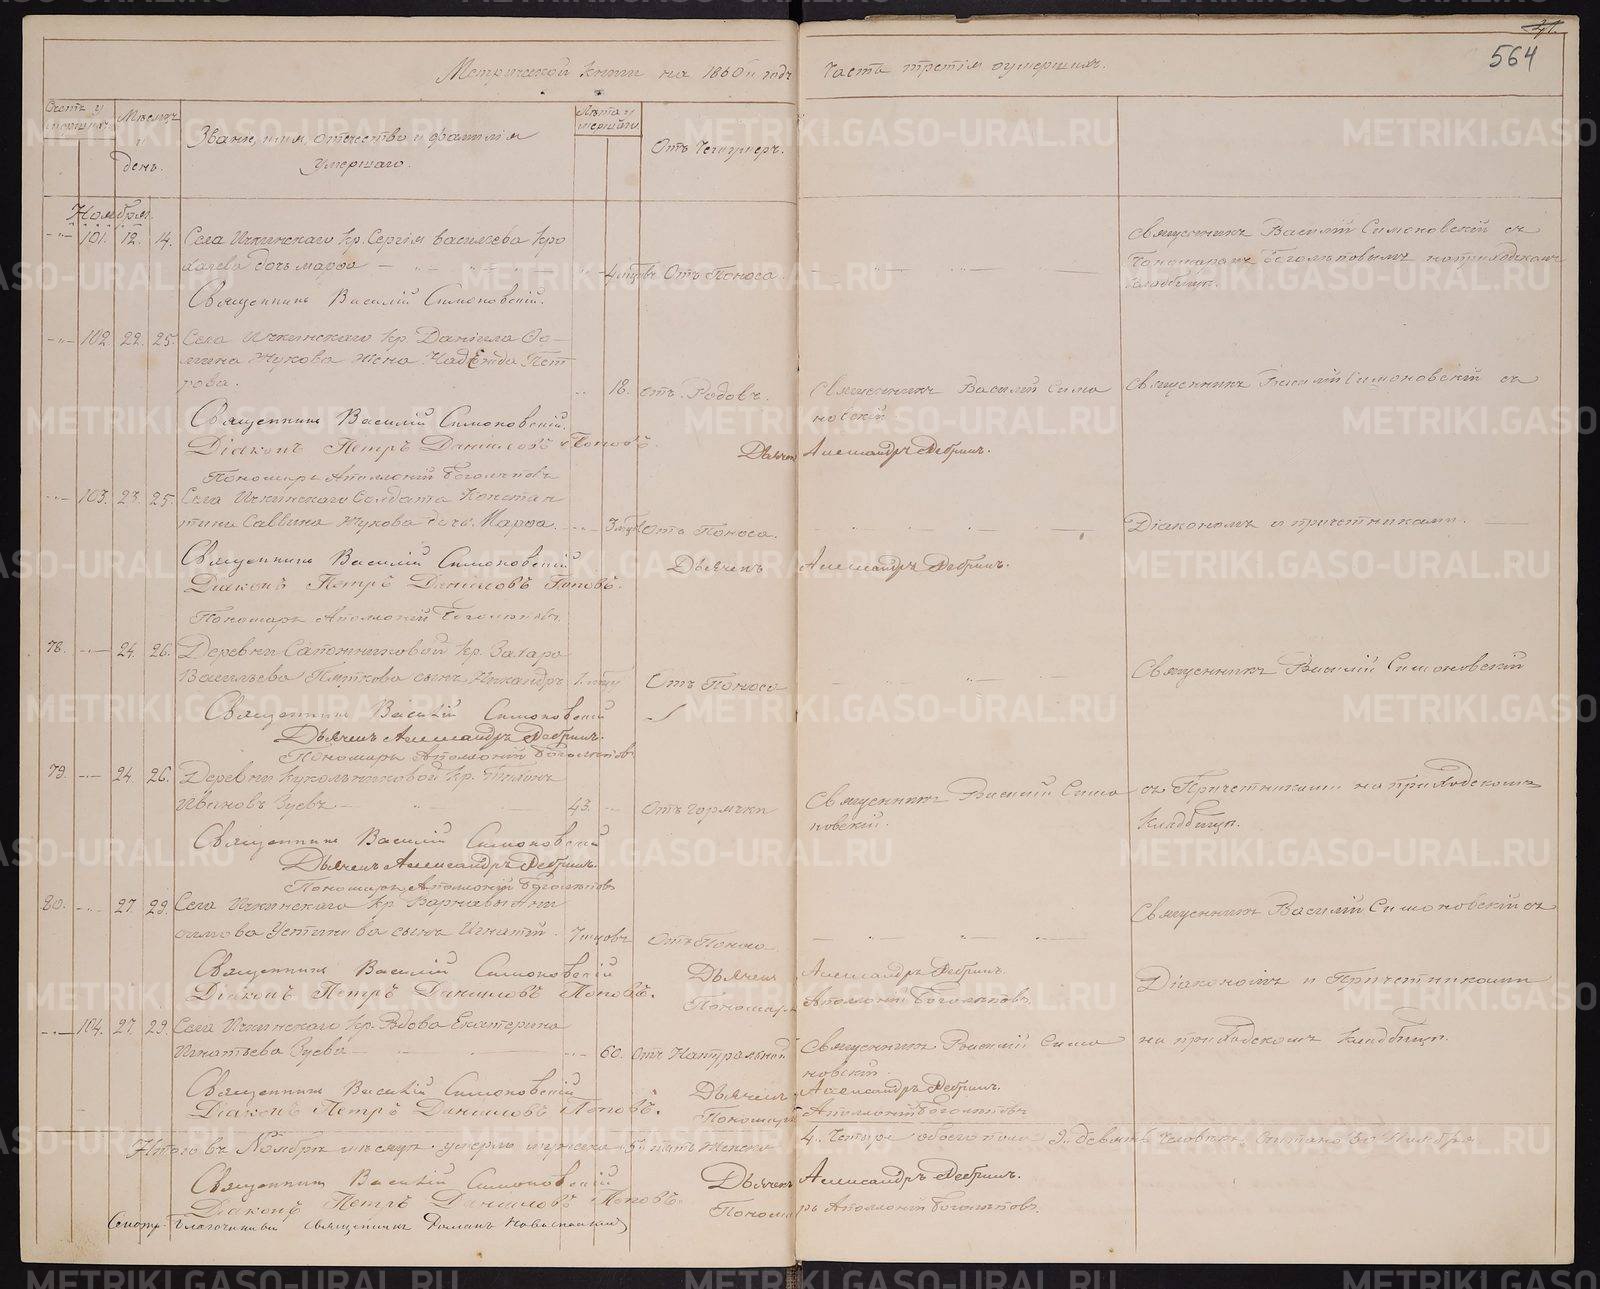 Метрической книги на 1860й годъ Часть третія оумершихъ.
564
Счетъ умершихъ
Мѣсяцъ и день.
Званіе, имя, отчество и фамилія умершаго.
Лѣта умершаго
Отъ чего умеръ.
Ноября.
101. 12. 14. Села Ичкинскаго кр. Сергія Васильева
дочь Марѳа 4 мѣсцовъ Отъ Поноса.
Священникъ Василій Симоновскій съ
Пономаремъ Боголѣповымъ на приходскомъ
кладбищѣ.
Священникъ Василій Симоновскій.
102. 22. 25. Села Ичкинскаго кр. Даніила Ѳо-
мина Жукова жена Надежда Пет
рова.
18. отъ Родовъ.
Священникъ Василій Симо
новскій
Священникъ Василій Симоновскій съ
Священникъ Василій Симоновскій.
Діаконъ Петръ Даниловъ Поповъ.
Дьячекъ Александръ Дебринъ.
Пономарь Аполлоній Боголѣповъ
103. 23. 25. Села Ичкинскаго Солдата Констан
тина Саввина Жукова дочь Марѳа. 3 мѣс. Отъ Поноса.
Діакономъ и причетниками.
Священникъ Василій Симоновскій
Дьячекъ Александръ Дебринъ.
Діаконъ Петръ Даниловъ Поповъ.
Пономарь Аполлоній Боголѣповъ
78. 24. 26. Деревни Сапожниковой кр. Захара
Васильева Пяткова сынъ Никандръ 1. Отъ Поноса
Священникъ Василій Симоновскій
Священникъ Василій Симоновскій
Дьячекъ Александръ Дебринъ.
Пономарь Аполлоній Боголѣповъ
79. 24. 26. Деревни Кукольниковой кр.
Ивановъ Зуевъ 43. Отъ горячки
Священникъ Василій Симо
новскій.
съ Причетниками на приходскомъ
кладбищѣ.
Священникъ Василій Симоновскій
Дьячекъ Александръ Дебринъ.
Пономарь Аполлоній Боголѣповъ
80. 27. 29. Села Ичкинскаго кр. Варнавы Анѳи
Устинова сынъ Игнатій. 7 мцовъ отъ Поноса
Священникъ Василій Симоновскій съ
Священникъ Василій Симоновскій
Дьячекъ Александръ Дебринъ.
Діакономъ и Причетниками
Діаконъ Петръ Даниловъ Поповъ.
Пономарь Аполлоній Боголѣповъ
104. 27. 29. Села Ичкинскаго кр. Вдова Екатерина
Игнатьева Зуева 60. отъ Натуральной
Священникъ Василій Симо
новскій
на приходскомъ кладбищѣ.
Священникъ Василій Симоновскій
Дьячекъ Александръ Дебринъ.
Діаконъ Петръ Даниловъ Поповъ.
Пономарь Аполлоній Боголѣповъ
Итого въ Ноябрѣ мѣсяцѣ умерло мужеска 5. пять женска 4. Четыре обоего пола 9. девять человѣкъ. Считано 30 Ноября
Священникъ Василій Симоновскій
Дьячекъ Александръ Дебринъ.
Діаконъ Петръ Даниловъ Поповъ.
Пономарь Аполлоній Боголѣповъ.
Смотр. Благочинный священникъ Романъ
METRIKI.GASO-URAL.RU